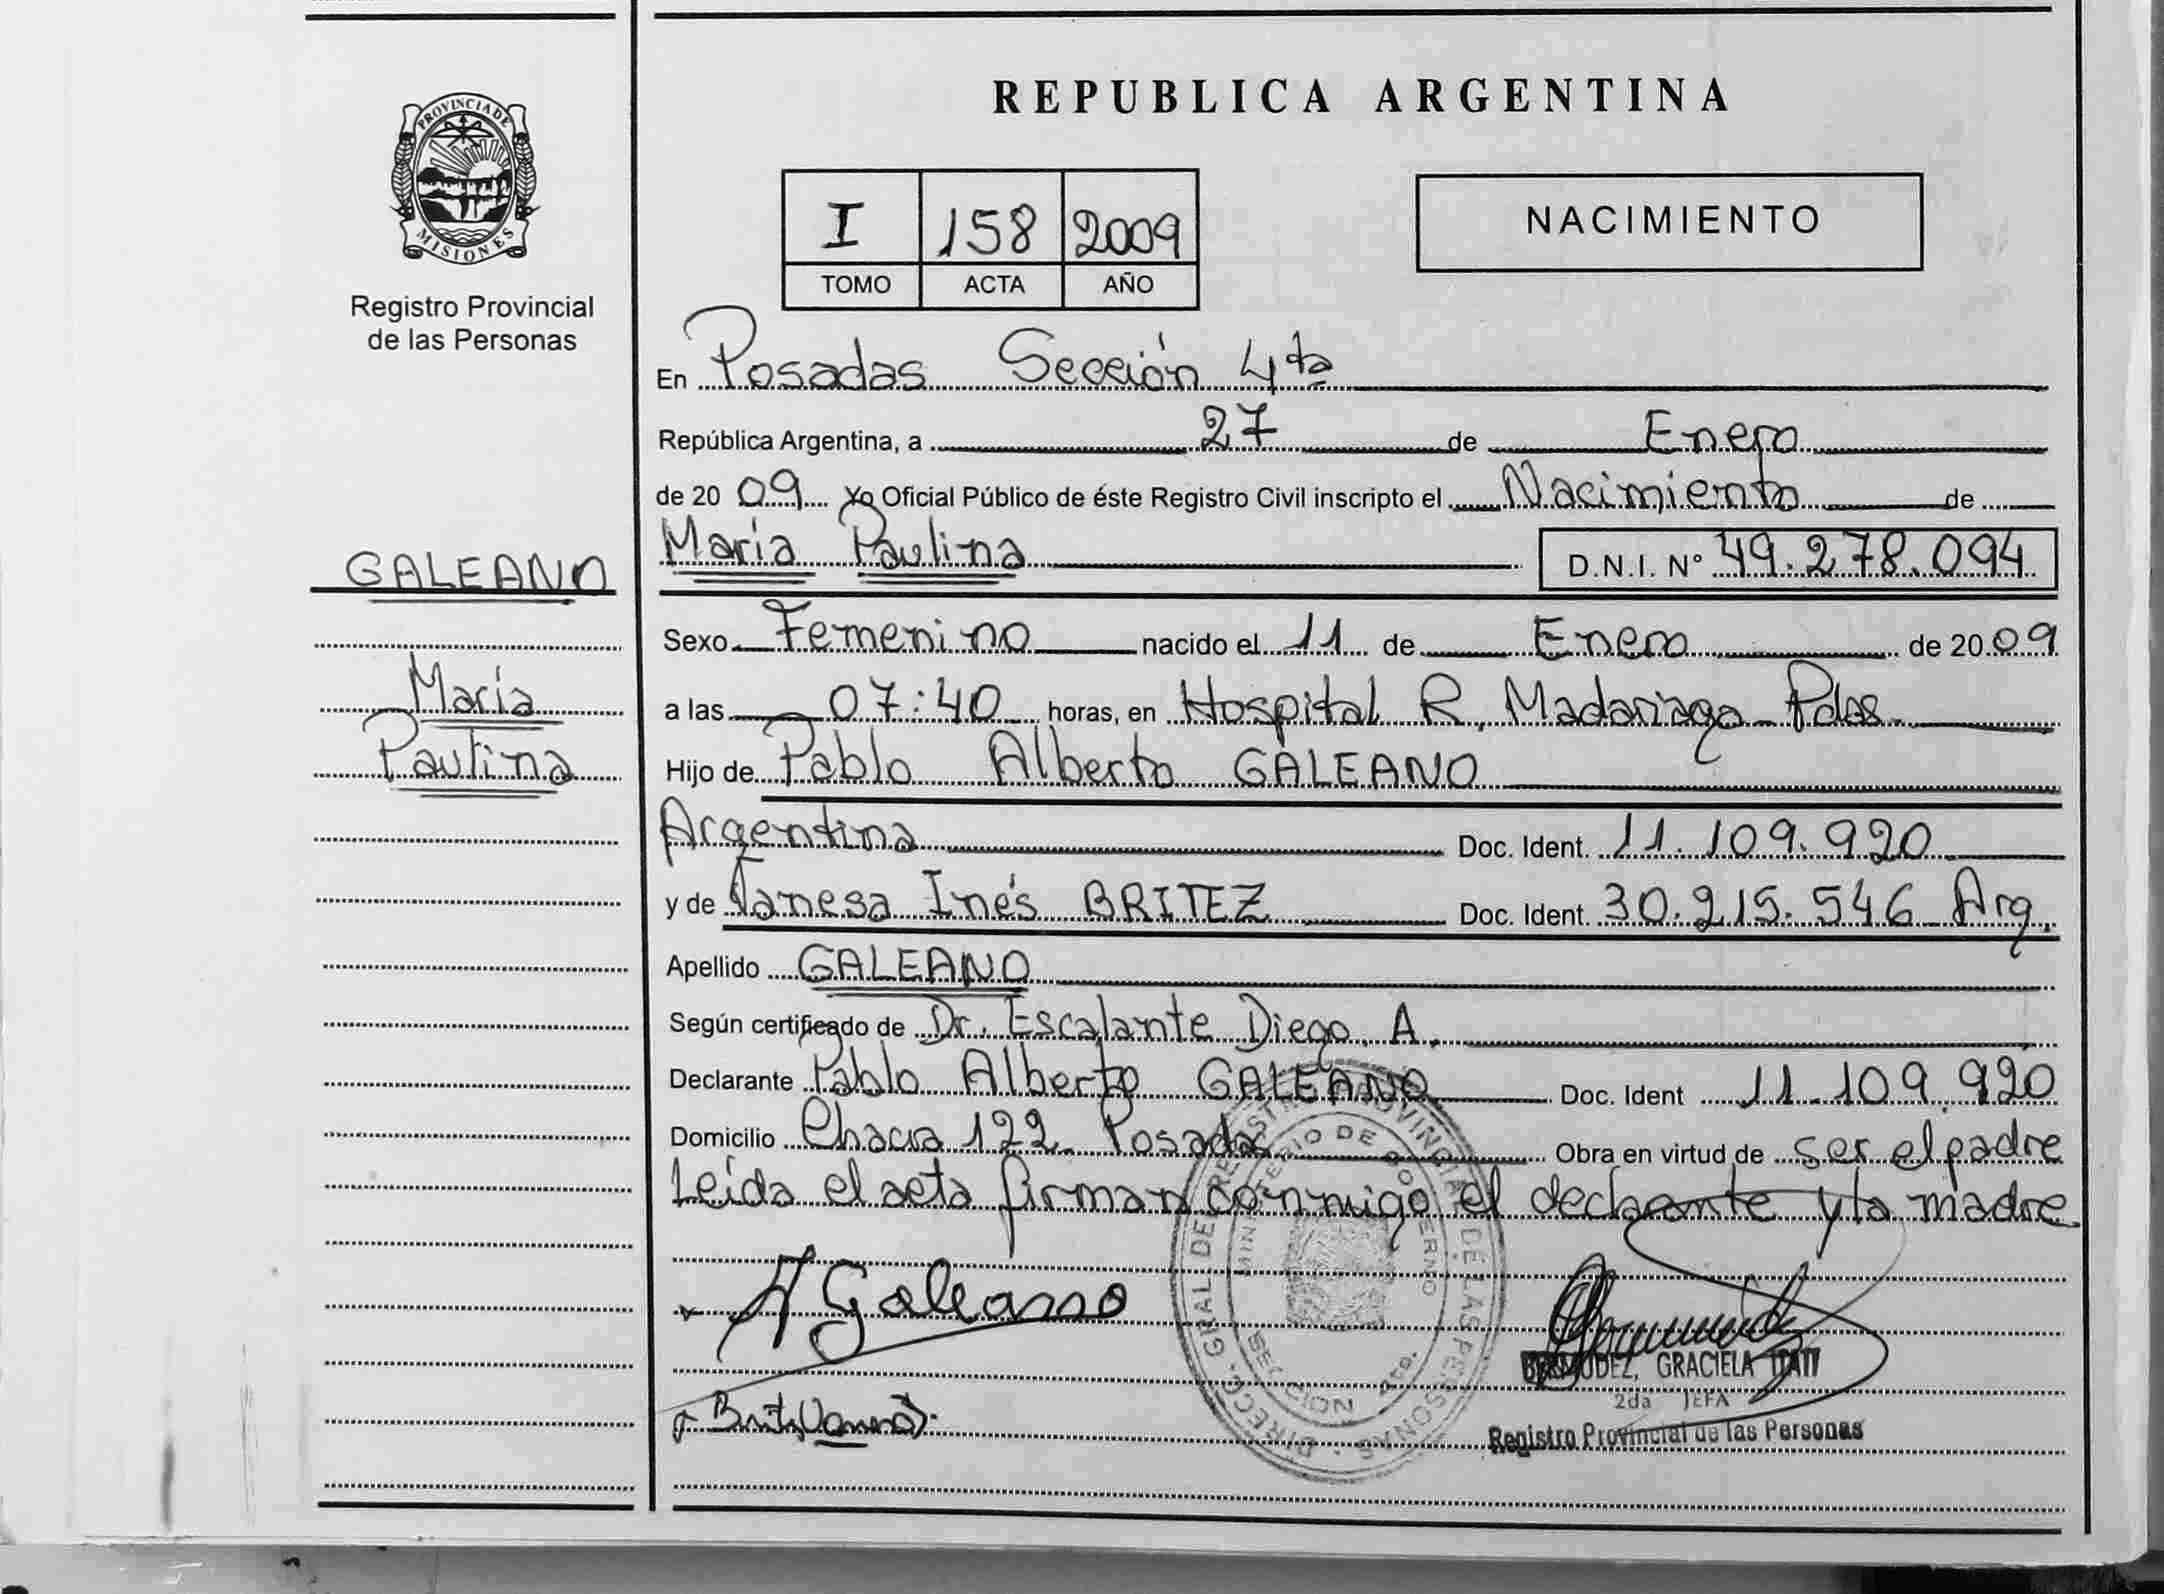 PROVINCIA DE
MISIONES
Registro Provincial
de las Personas
GALEANO
María
Paulina
REPUBLICA ARGENTINA
I 158 2009
TOMO ACTA AÑO
NACIMIENTO
En Posadas Sección 4ta
República Argentina, a 27 de Enero
de 2009 Yo Oficial Público de éste Registro Civil inscripto el Nacimiento de
María Paulina D.N.I. N° 49.278.094
Sexo Femenino nacido el 11 de Enero de 2009
a las 07:40 horas, en Hospital R. Madariaga Pdas.
Hijo de Pablo Alberto GALEANO
Argentina Doc. Ident. 11.109.920
y de Vanesa Inés BRITEZ Doc. Ident. 30.215.546 Arg.
Apellido GALEANO
Según certificado de Dr. Escalante Diego A.
Declarante Pablo Alberto GALEANO Doc. Ident 11.109.920
Domicilio Chacra 122 Posadas Obra en virtud de ser el padre
Leída el acta firman conmigo el declarante y la madre
DIRECC. GRAL DE REGISTRO PROVINCIAL DE LAS PERSONAS
MINISTERIO DE GOBIERNO
SECCION 4ta.
A Galeano
BERMUDEZ, GRACIELA ITATI
2da JEFA
Registro Provincial de las Personas